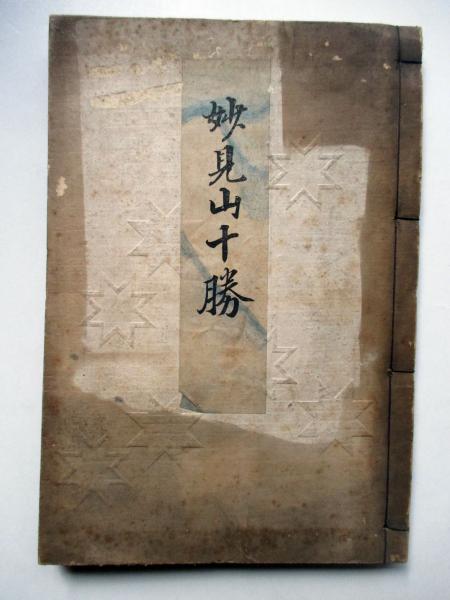 妙見山十勝